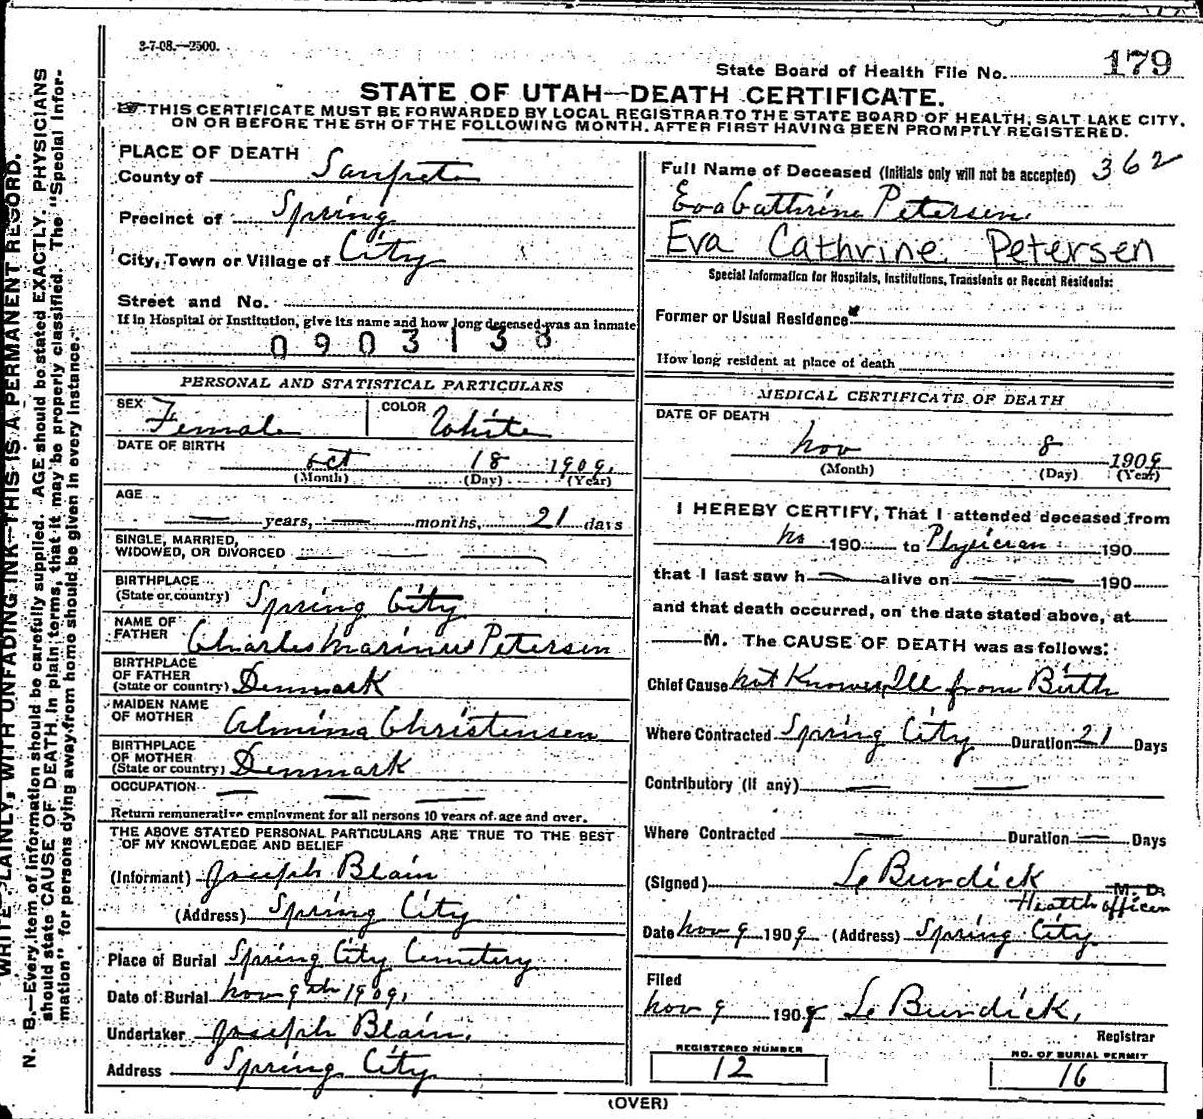 3-7-08.—2500.
State Board of Health File No. 179
STATE OF UTAH—DEATH CERTIFICATE.
THIS CERTIFICATE MUST BE FORWARDED BY LOCAL REGISTRAR TO THE STATE BOARD OF HEALTH, SALT LAKE CITY,
ON OR BEFORE THE 5TH OF THE FOLLOWING MONTH, AFTER FIRST HAVING BEEN PROMPTLY REGISTERED.
WRITE PLAINLY, WITH UNFADING INK—THIS IS A PERMANENT RECORD.
N. B.—Every item of information should be carefully supplied. AGE should be stated EXACTLY. PHYSICIANS
should state CAUSE OF DEATH in plain terms, that it may be properly classified. The "Special Infor-
mation" for persons dying away from home should be given in every instance.
PLACE OF DEATH
County of Sanpete
Precinct of Spring
City, Town or Village of City
Street and No.
If in Hospital or Institution, give its name and how long deceased was an inmate
0903138
PERSONAL AND STATISTICAL PARTICULARS
SEX Female COLOR White
DATE OF BIRTH
Oct 18 1909.
(Month) (Day) (Year)
AGE
— years, — months, 21 days
SINGLE, MARRIED,
WIDOWED, OR DIVORCED — — —
BIRTHPLACE
(State or country) Spring City
NAME OF
FATHER Charles Marinus Petersen
BIRTHPLACE
OF FATHER
(State or country) Denmark
MAIDEN NAME
OF MOTHER Almina Christensen
BIRTHPLACE
OF MOTHER
(State or country) Denmark
OCCUPATION — — —
Return remunerative employment for all persons 10 years of age and over.
THE ABOVE STATED PERSONAL PARTICULARS ARE TRUE TO THE BEST
OF MY KNOWLEDGE AND BELIEF
(Informant) Joseph Blain
(Address) Spring City
Place of Burial Spring City Cemetery
Date of Burial Nov 9th 1909.
Undertaker Joseph Blain.
Address Spring City
Full Name of Deceased (Initials only will not be accepted) 362
Eva Cathrine Petersen.
Eva Cathrine Petersen
Special Information for Hospitals, Institutions, Transients or Recent Residents:
Former or Usual Residence
How long resident at place of death
MEDICAL CERTIFICATE OF DEATH
DATE OF DEATH
Nov 8 1909
(Month) (Day) (Year)
I HEREBY CERTIFY, That I attended deceased from
No 190 to Physician 190
that I last saw h — alive on — — 190
and that death occurred, on the date stated above, at
— M. The CAUSE OF DEATH was as follows:
Chief Cause Not Known Ill from Birth
Where Contracted Spring City Duration 21 Days
Contributory (if any) — —
Where Contracted — Duration — Days
(Signed) Burdick M. D.
Health officer
Date Nov 9 1909 (Address) Spring City
Filed
Nov 9 1909 Burdick,
Registrar
REGISTERED NUMBER
12
NO. OF BURIAL PERMIT
16
(OVER)